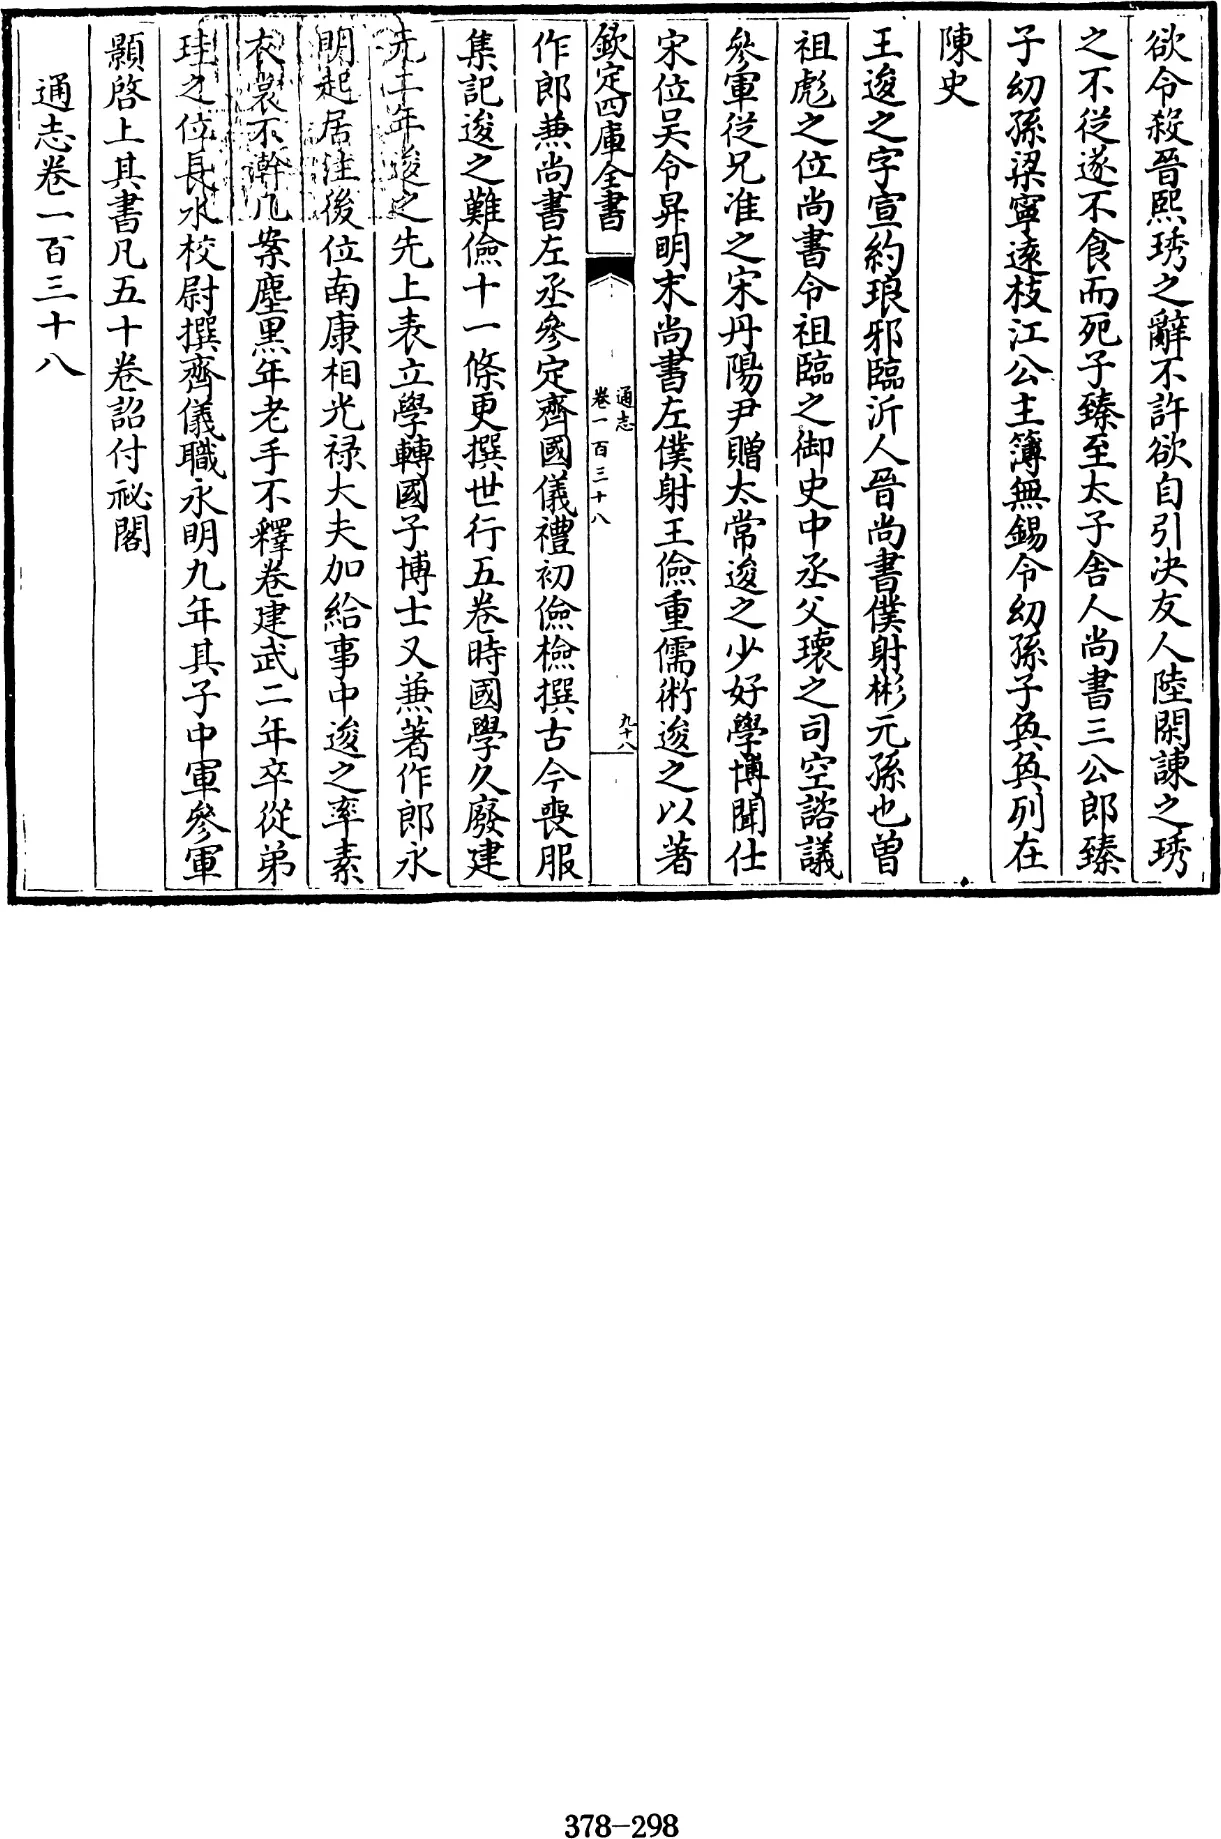 欲令殺晉熙琇之辭不許欲自引決友人陸閑諫之琇
之不從遂不食而死子臻至太子舍人尚書三公郎臻
子幼孫梁寧遠枝江公主簿無錫令幼孫子奐奐列在
陳史
王逡之字宣約琅邪臨沂人晉尚書僕射彬元孫也曾
祖彪之位尚書令祖臨之御史中丞父瓌之司空諮議
參軍從兄准之宋丹陽尹贈太常逡之少好學博聞仕
宋位吴令昇明末尚書左僕射王儉重儒術逡之以著
欽定四庫全書
通志
卷一百三十八
九十八
作郎兼尚書左丞參定齊國儀禮初儉檢撰古今喪服
集記逡之難儉十一條更撰世行五卷時國學久廢建
元二年逡之先上表立學轉國子博士又兼著作郎永
明起居注後位南康相光禄大夫加給事中逡之率素
衣裳不澣几案塵黒年老手不釋卷建武二年卒從弟
珪之位長水校尉撰齊儀職永明九年其子中軍參軍
顥啓上其書凡五十卷詔付祕閣
通志卷一百三十八
378-298